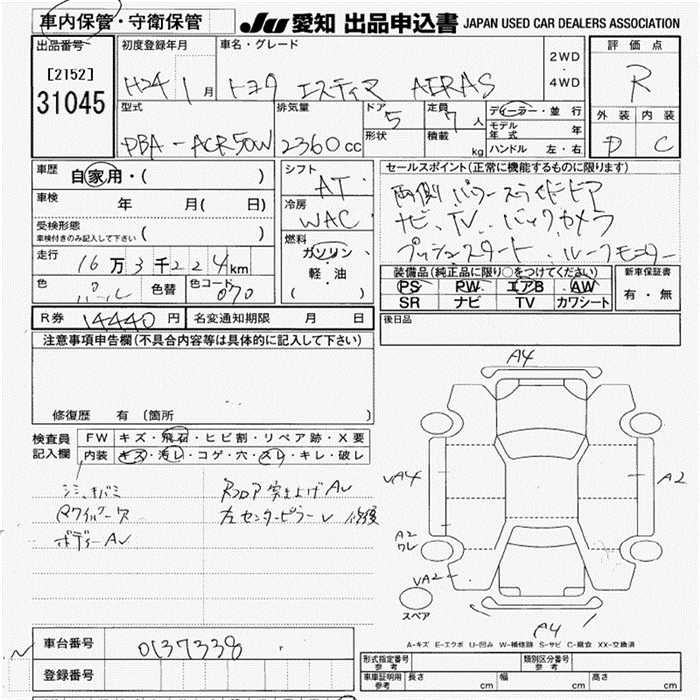 車内保管・守衛保管
JU 愛知 出品申込書 JAPAN USED CAR DEALERS ASSOCIATION
出品番号 初度登録年月 車名・グレード 2WD・4WD 評価点
[2152]
31045
H24 1月 トヨタ エスティマ AERAS R
型式 排気量 ドア 5 定員 7人 ディーラー・並行 外装 内装
形状 積載 kg モデル年式 年
DBA-ACR50W 2360cc ハンドル 左・右 D C
車歴 自家用・( ) シフト AT セールスポイント(正常に機能するものに限ります)
車検 年 月( 日) 冷房 WAC 両側パワースライドドア
受検形態 ナビ、TV、バックカメラ
車検付きのみ記入して下さい ( ) 燃料 プッシュスタート、ルーフモニター
走行 16万3千224km ガソリン・軽・油 ( )
装備品(純正品に限り○をつけてください) 新車保証書
色 パール 色替 色コード 070 PS PW エアB AW 有・無
SR ナビ TV カワシート
R券 14440円 名変通知期限 月 日 後日品
注意事項申告欄(不具合内容等は具体的に記入して下さい)
修復歴 有 (箇所
検査員記入欄 FW キズ・飛石・ヒビ割・リペア跡・X要
内装 キズ・汚レ・コゲ・穴・スレ・キレ・破レ
シミ、キバミ Rフロア突き上げAU
Rワイパーレス 左センターピラーU 修後
ボディーAU
A4
A2
A2
ワレ
VA2
スペア
A4
A-キズ E-エクボ U-凹み W-補修跡 S-サビ C-腐食 XX-交換済
車台番号 0137338
登録番号
形式指定番号 参考 類別区分番号 参考
車庫証明用 参考 長さ cm 幅 cm 高さ cm